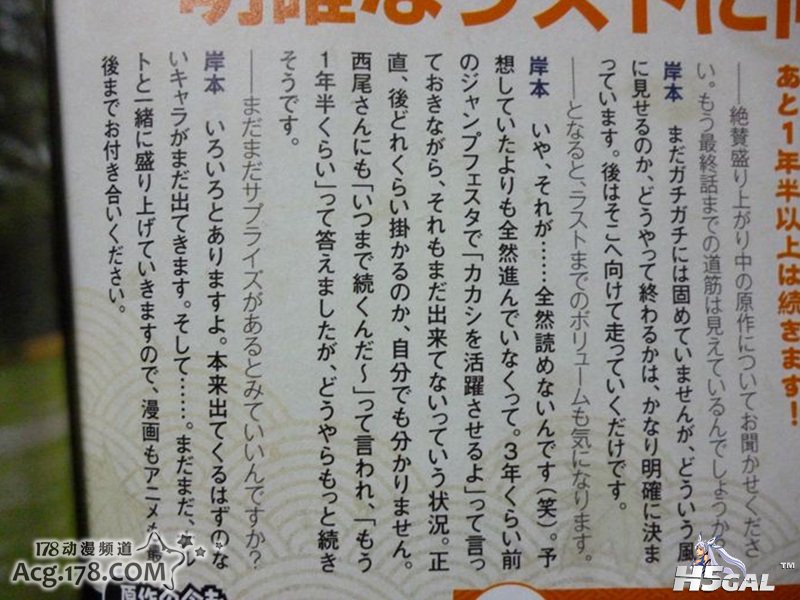 明確なラストに向
あと1年半以上は続きます!
──絶賛盛り上がり中の原作についてお聞かせくださ
い。もう最終話までの道筋は見えているんでしょうか?
岸本 まだガチガチには固めていませんが、どういう風
に見せるのか、どうやって終わるかは、かなり明確に決ま
っています。後はそこへ向けて走っていくだけです。
──となると、ラストまでのボリュームも気になります。
岸本 いや、それが……全然読めないんです(笑)。予
想していたよりも全然進んでいなくって。3年くらい前
のジャンプフェスタで「カカシを活躍させるよ」って言っ
ておきながら、それもまだ出来てないっていう状況。正
直、後どれくらい掛かるのか、自分でも分かりません。
西尾さんにも「いつまで続くんだ〜」って言われ、「もう
1年半くらい」って答えましたが、どうやらもっと続き
そうです。
──まだまだサプライズがあるとみていいんですか?
岸本 いろいろとありますよ。本来出てくるはずのな
いキャラがまだ出てきます。そして……。まだまだ、
トと一緒に盛り上げていきますので、漫画もアニメも最
後までお付き合いください。
178动漫频道
Acg.178.COM
H5GAL
TM